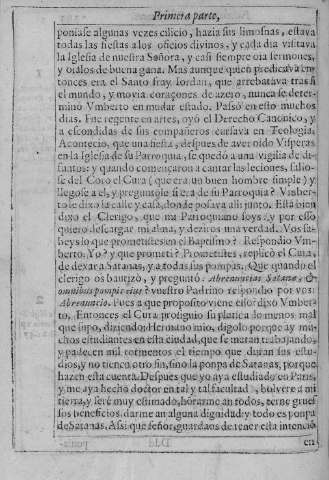 Primera parte,
poníase algunas vezes cilicio, hazia sus limosnas, estava
todas las fiestas a los oficios divinos, y cada dia visitava
la Iglesia de nuestra Señora, y casi siempre oia sermones,
y oíalos de buena gana. Mas aunque quien predicava en-
tonces era el Santo fray Iordan, que arrebatava tras si
el mundo, y movia coraçones de azero, nunca se deter-
minó Vmberto en mudar estado. Passò en esto muchos
dias. Fue regente en artes, oyó el Derecho Canonico, y
a escondidas de sus compañeros cursava en Teologia.
Acontecio, que una fiesta, despues de aver oido Visperas
en la Iglesia de su Parroquia, se quedó a una vigilia de di-
funtos: y quando començaron a cantar las lecciones, salio-
se del Coro el Cura (que era un buen hombre simple) y
llegose a el, y preguntóle si era de su Parroquia? Vmber-
to le dixo la calle y casa, donde posava alli junto. Està bien
dixo el Clerigo, que mi Parroquiano soys: y por esso
quiero descargar mi alma, y deziros una verdad. Vos sa-
beys lo que prometistes en el Baptismo? Respondio Vm-
berto. Yo? y que prometi? Prometistes, replicó el Cura,
de dexar a Satanas, y a todas sus pompas. Que quando el
clerigo os bautizò, y preguntó: Abrenuncias Satanæ, &
omnibus pompis eius? vuestro Padrino respondio por vos:
Abrenuncio. Pues a que proposito viene esso? dixo Vmber-
to. Entonces el Cura prosiguio su platica lo menos mal
que supo, diziendo: Hermano mio, digolo porque ay mu-
chos estudiantes en esta ciudad, que se matan trabajando,
y padecen mil tormentos el tiempo que duran sus estu-
dios, y no tienen otro fin, sino la ponpa de Satanas, porque
hazen esta cuenta. Despues que yo aya estudiado en Paris,
y me aya hecho doctor en tal y tal facultad, bolvere a mi
tierra, y seré muy estimado, hõrarme an todos, terne grues
sos beneficios, darme an alguna dignidad: y todo es ponpa
de Satanas. Assi que señor, guardaos de tener esta intenció
en